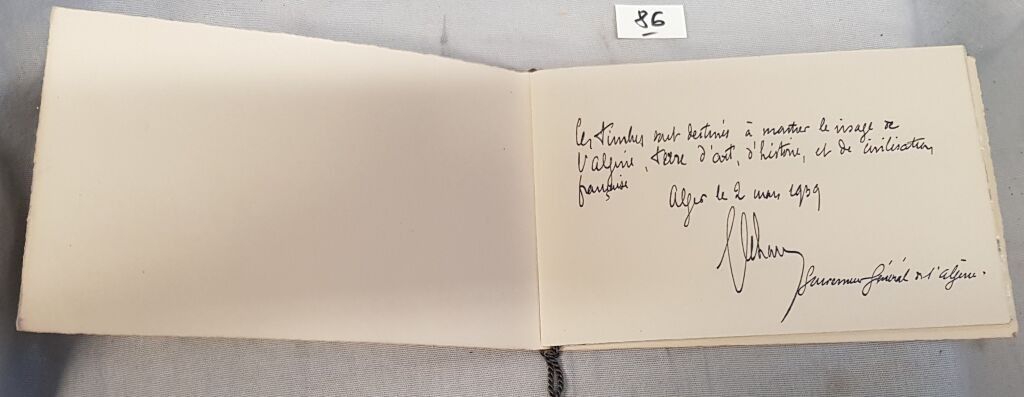 86
Ces timbres sont destinés à montrer le visage de
l'Algérie, terre d'art, d'histoire, et de civilisation
française
Alger le 2 mars 1939
Gouverneur Général de l'Algérie.